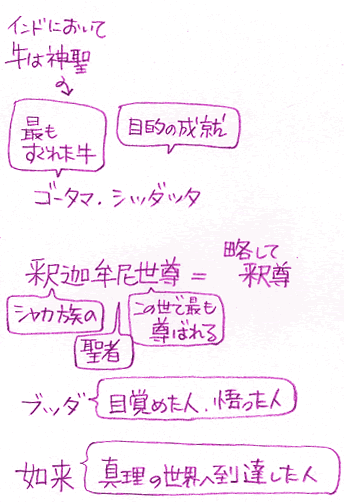 インドにおいて
牛は神聖
最も
すぐれた牛
目的の成就
ゴータマ・シッダッタ
釈迦牟尼世尊 = 略して
釈尊
シャカ族の
聖者
この世で最も
尊ばれる
ブッダ
目覚めた人、悟った人
如来
真理の世界へ到達した人